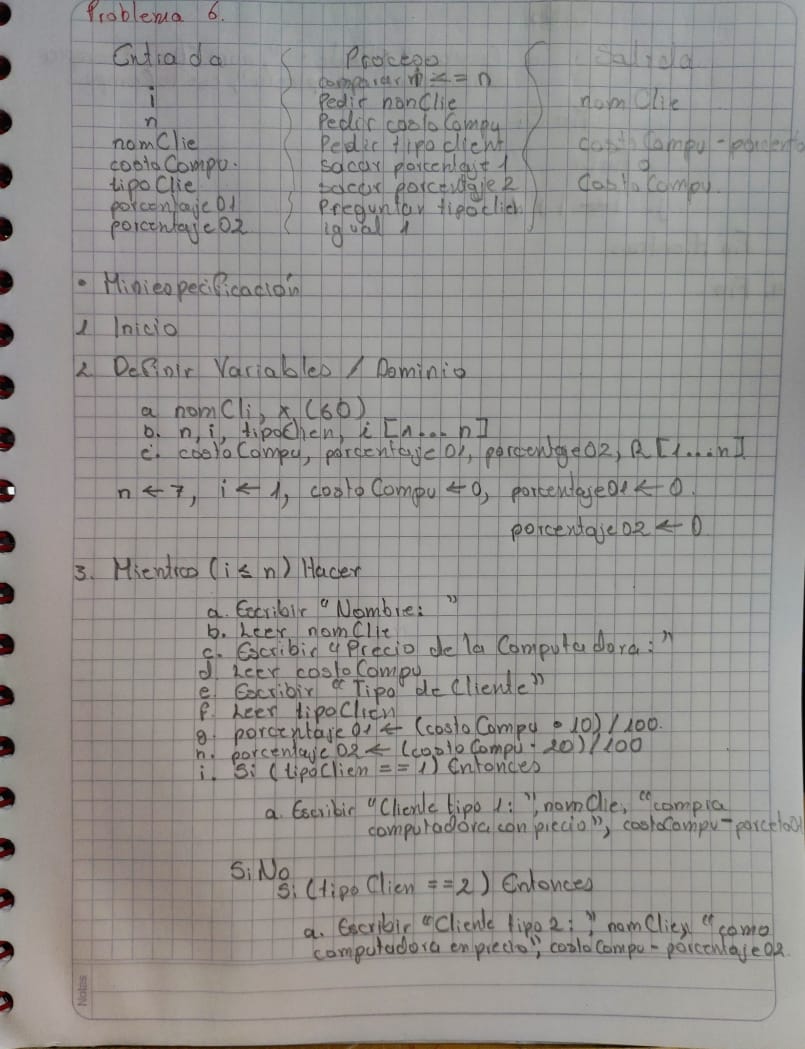 Problema 6.
Entrada Proceso Salida
comparar i <= n
i Pedir nomClie nomClie
n Pedir costoCompu
nomClie Pedir tipo client costoCompu - porcenta
costoCompu. sacar porcentaje 1 o
tipoClie sacar porcentaje 2 CostoCompu
porcentaje01 Preguntar tipoclien
porcentaje02 igual 1
• Miniespecificación
1 Inicio
2. Definir Variables / Dominio
a nomCli, x (60)
b. n, i, tipoClien, i [1...n]
c. costoCompu, porcentaje01, porcentaje02, R [1...n]
n ← 7, i ← 1, costoCompu ← 0, porcentaje01 ← 0
porcentaje02 ← 0
3. Mientras (i ≤ n) Hacer
a. Escribir "Nombre: "
b. Leer nomClie
c. Escribir "Precio de la Computadora:"
d Leer costoCompu
e Escribir "Tipo de Cliente"
f. Leer tipoClien
g. porcentaje01 ← (costoCompu • 10) / 100.
h. porcentaje02 ← (costoCompu · 20) / 100
i. Si (tipoClien == 1) Entonces
a. Escribir "Cliente tipo 1:", nomClie, "compra
computadora con precio", costoCompu-
SiNo
Si (tipoClien == 2) Entonces
a. Escribir "Cliente tipo 2:", nomClien "como
computadora en precio", costoCompu - porcentaje02
Notes